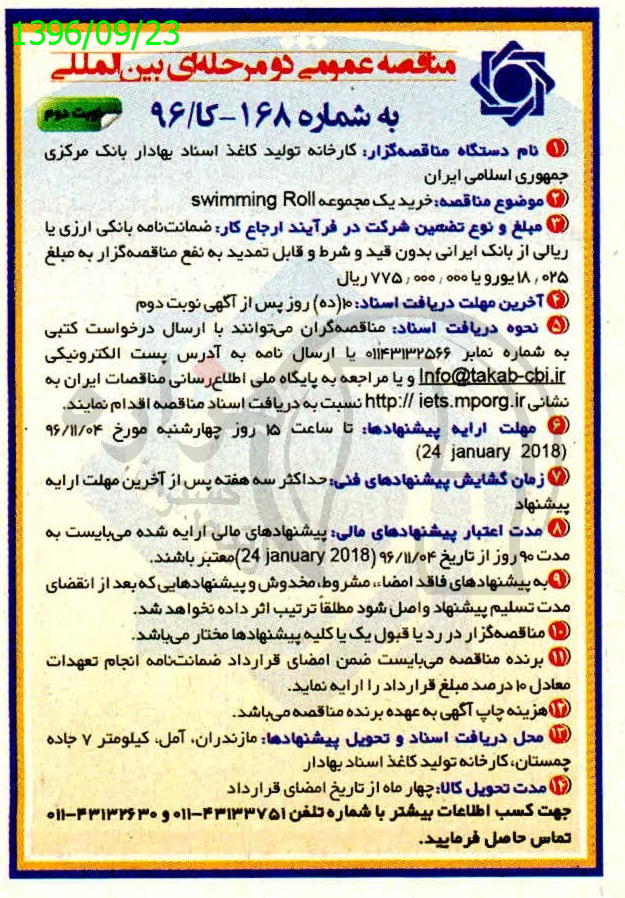 1396/09/23
مناقصه عمومی دو مرحله‌ای بین‌المللی
به شماره ۱۶۸-کا/۹۶
نوبت دوم
۱ نام دستگاه مناقصه‌گزار: کارخانه تولید کاغذ اسناد بهادار بانک مرکزی
جمهوری اسلامی ایران
۲ موضوع مناقصه: خرید یک مجموعه swimming Roll
۳ مبلغ و نوع تضمین شرکت در فرآیند ارجاع کار: ضمانت‌نامه بانکی ارزی یا
ریالی از بانک ایرانی بدون قید و شرط و قابل تمدید به نفع مناقصه‌گزار به مبلغ
۱۸٫۰۲۵ یورو یا ۷۷۵٫۰۰۰٫۰۰۰ ریال
۴ آخرین مهلت دریافت اسناد: ۱۰(ده) روز پس از آگهی نوبت دوم
۵ نحوه دریافت اسناد: مناقصه‌گران می‌توانند با ارسال درخواست کتبی
به شماره نمابر ۰۱۱۴۳۱۳۲۵۶۶ یا ارسال نامه به آدرس پست الکترونیکی
Info@takab-cbi.ir و یا مراجعه به پایگاه ملی اطلاع‌رسانی مناقصات ایران به
نشانی http:// iets.mporg.ir نسبت به دریافت اسناد مناقصه اقدام نمایند.
۶ مهلت ارایه پیشنهادها: تا ساعت ۱۵ روز چهارشنبه مورخ ۹۶/۱۱/۰۴
(24 january 2018)
۷ زمان گشایش پیشنهادهای فنی: حداکثر سه هفته پس از آخرین مهلت ارایه
پیشنهاد
۸ مدت اعتبار پیشنهادهای مالی: پیشنهادهای مالی ارایه شده می‌بایست به
مدت ۹۰ روز از تاریخ ۹۶/۱۱/۰۴ (24 january 2018) معتبر باشند.
۹ به پیشنهادهای فاقد امضاء، مشروط، مخدوش و پیشنهادهایی که بعد از انقضای
مدت تسلیم پیشنهاد واصل شود مطلقاً ترتیب اثر داده نخواهد شد.
۱۰ مناقصه‌گزار در رد یا قبول یک یا کلیه پیشنهادها مختار می‌باشد.
۱۱ برنده مناقصه می‌بایست ضمن امضای قرارداد ضمانت‌نامه انجام تعهدات
معادل ۱۰ درصد مبلغ قرارداد را ارایه نماید.
۱۲ هزینه چاپ آگهی به عهده برنده مناقصه می‌باشد.
۱۳ محل دریافت اسناد و تحویل پیشنهادها: مازندران، آمل، کیلومتر ۷ جاده
چمستان، کارخانه تولید کاغذ اسناد بهادار
۱۴ مدت تحویل کالا: چهار ماه از تاریخ امضای قرارداد
جهت کسب اطلاعات بیشتر با شماره تلفن ۴۳۱۳۳۷۵۱-۰۱۱ و ۴۳۱۳۲۶۳۰-۰۱۱
تماس حاصل فرمایید.